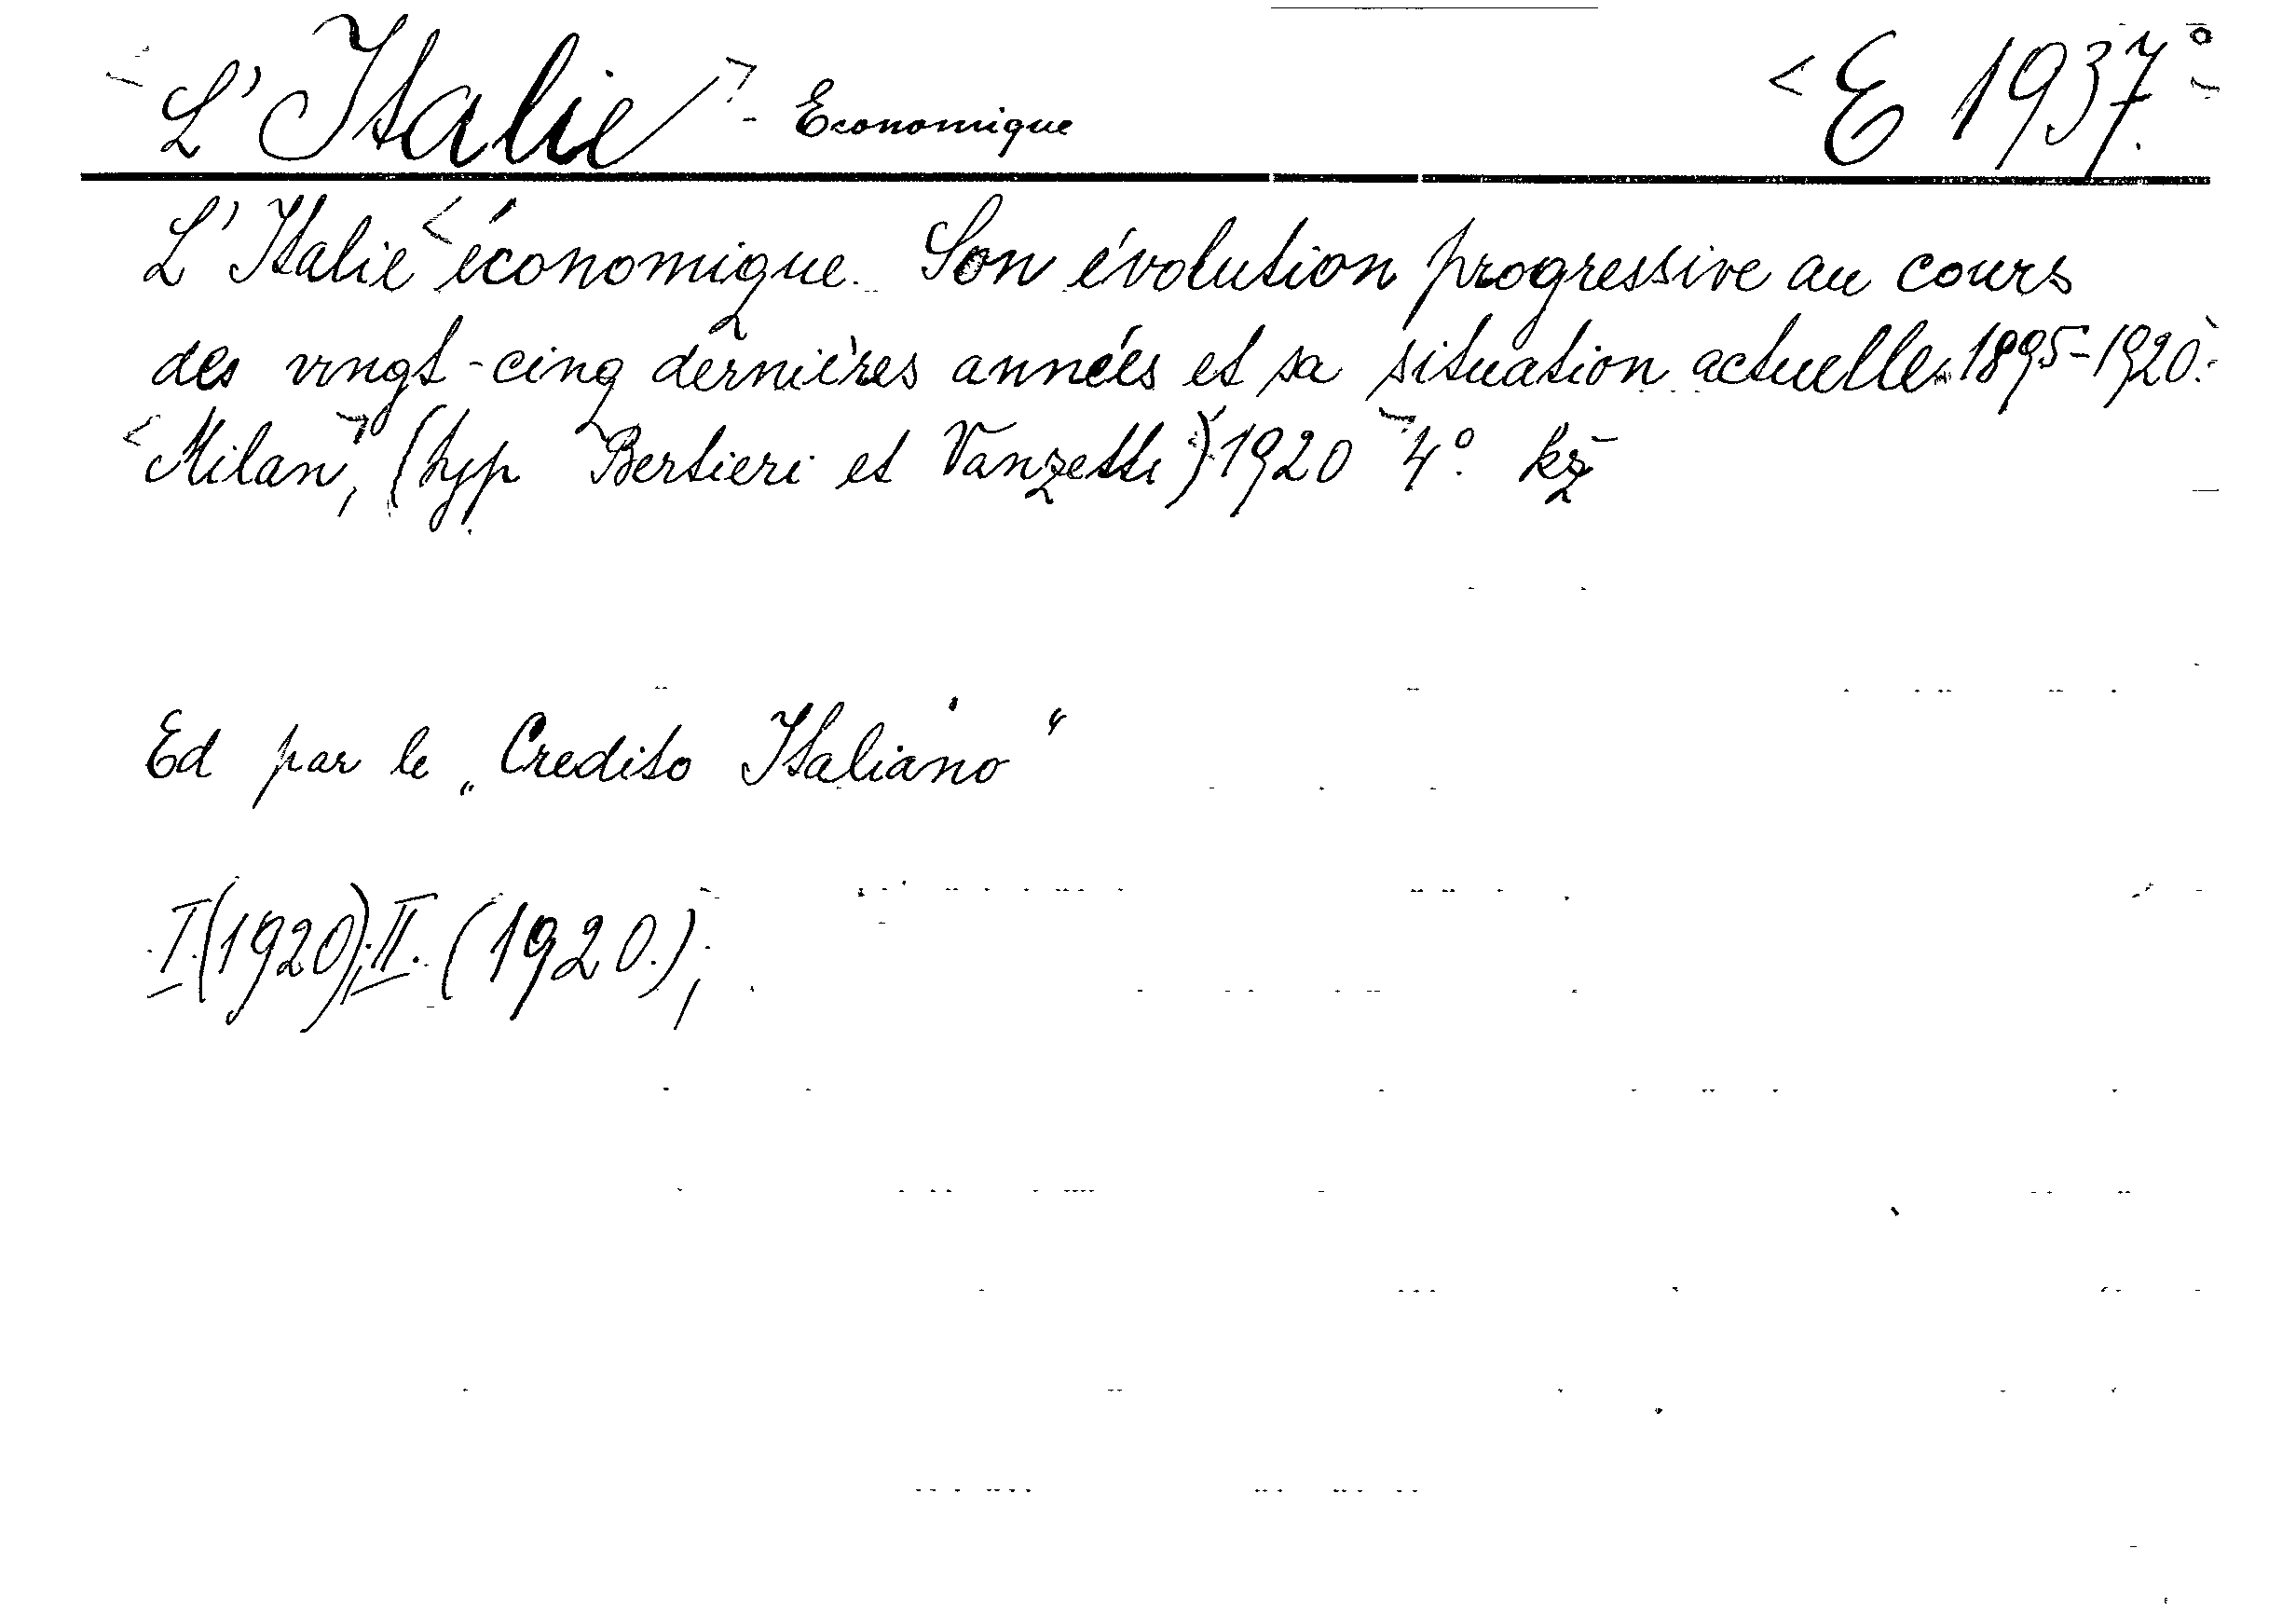 L'Italie - Economique E 1937.°
L'Italie économique. Son évolution progressive au cours
des vingt-cinq dernières années et sa situation actuelle. 1895-1920.
Milan, (typ Bertieri et Vanzetti) 1920 4° kz
Ed par le „Credito Italiano“
I.(1920); II. (1920.);